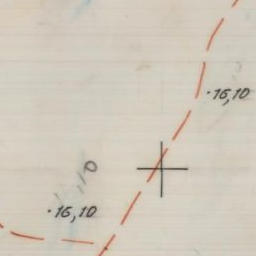 ·16,10
·16,10